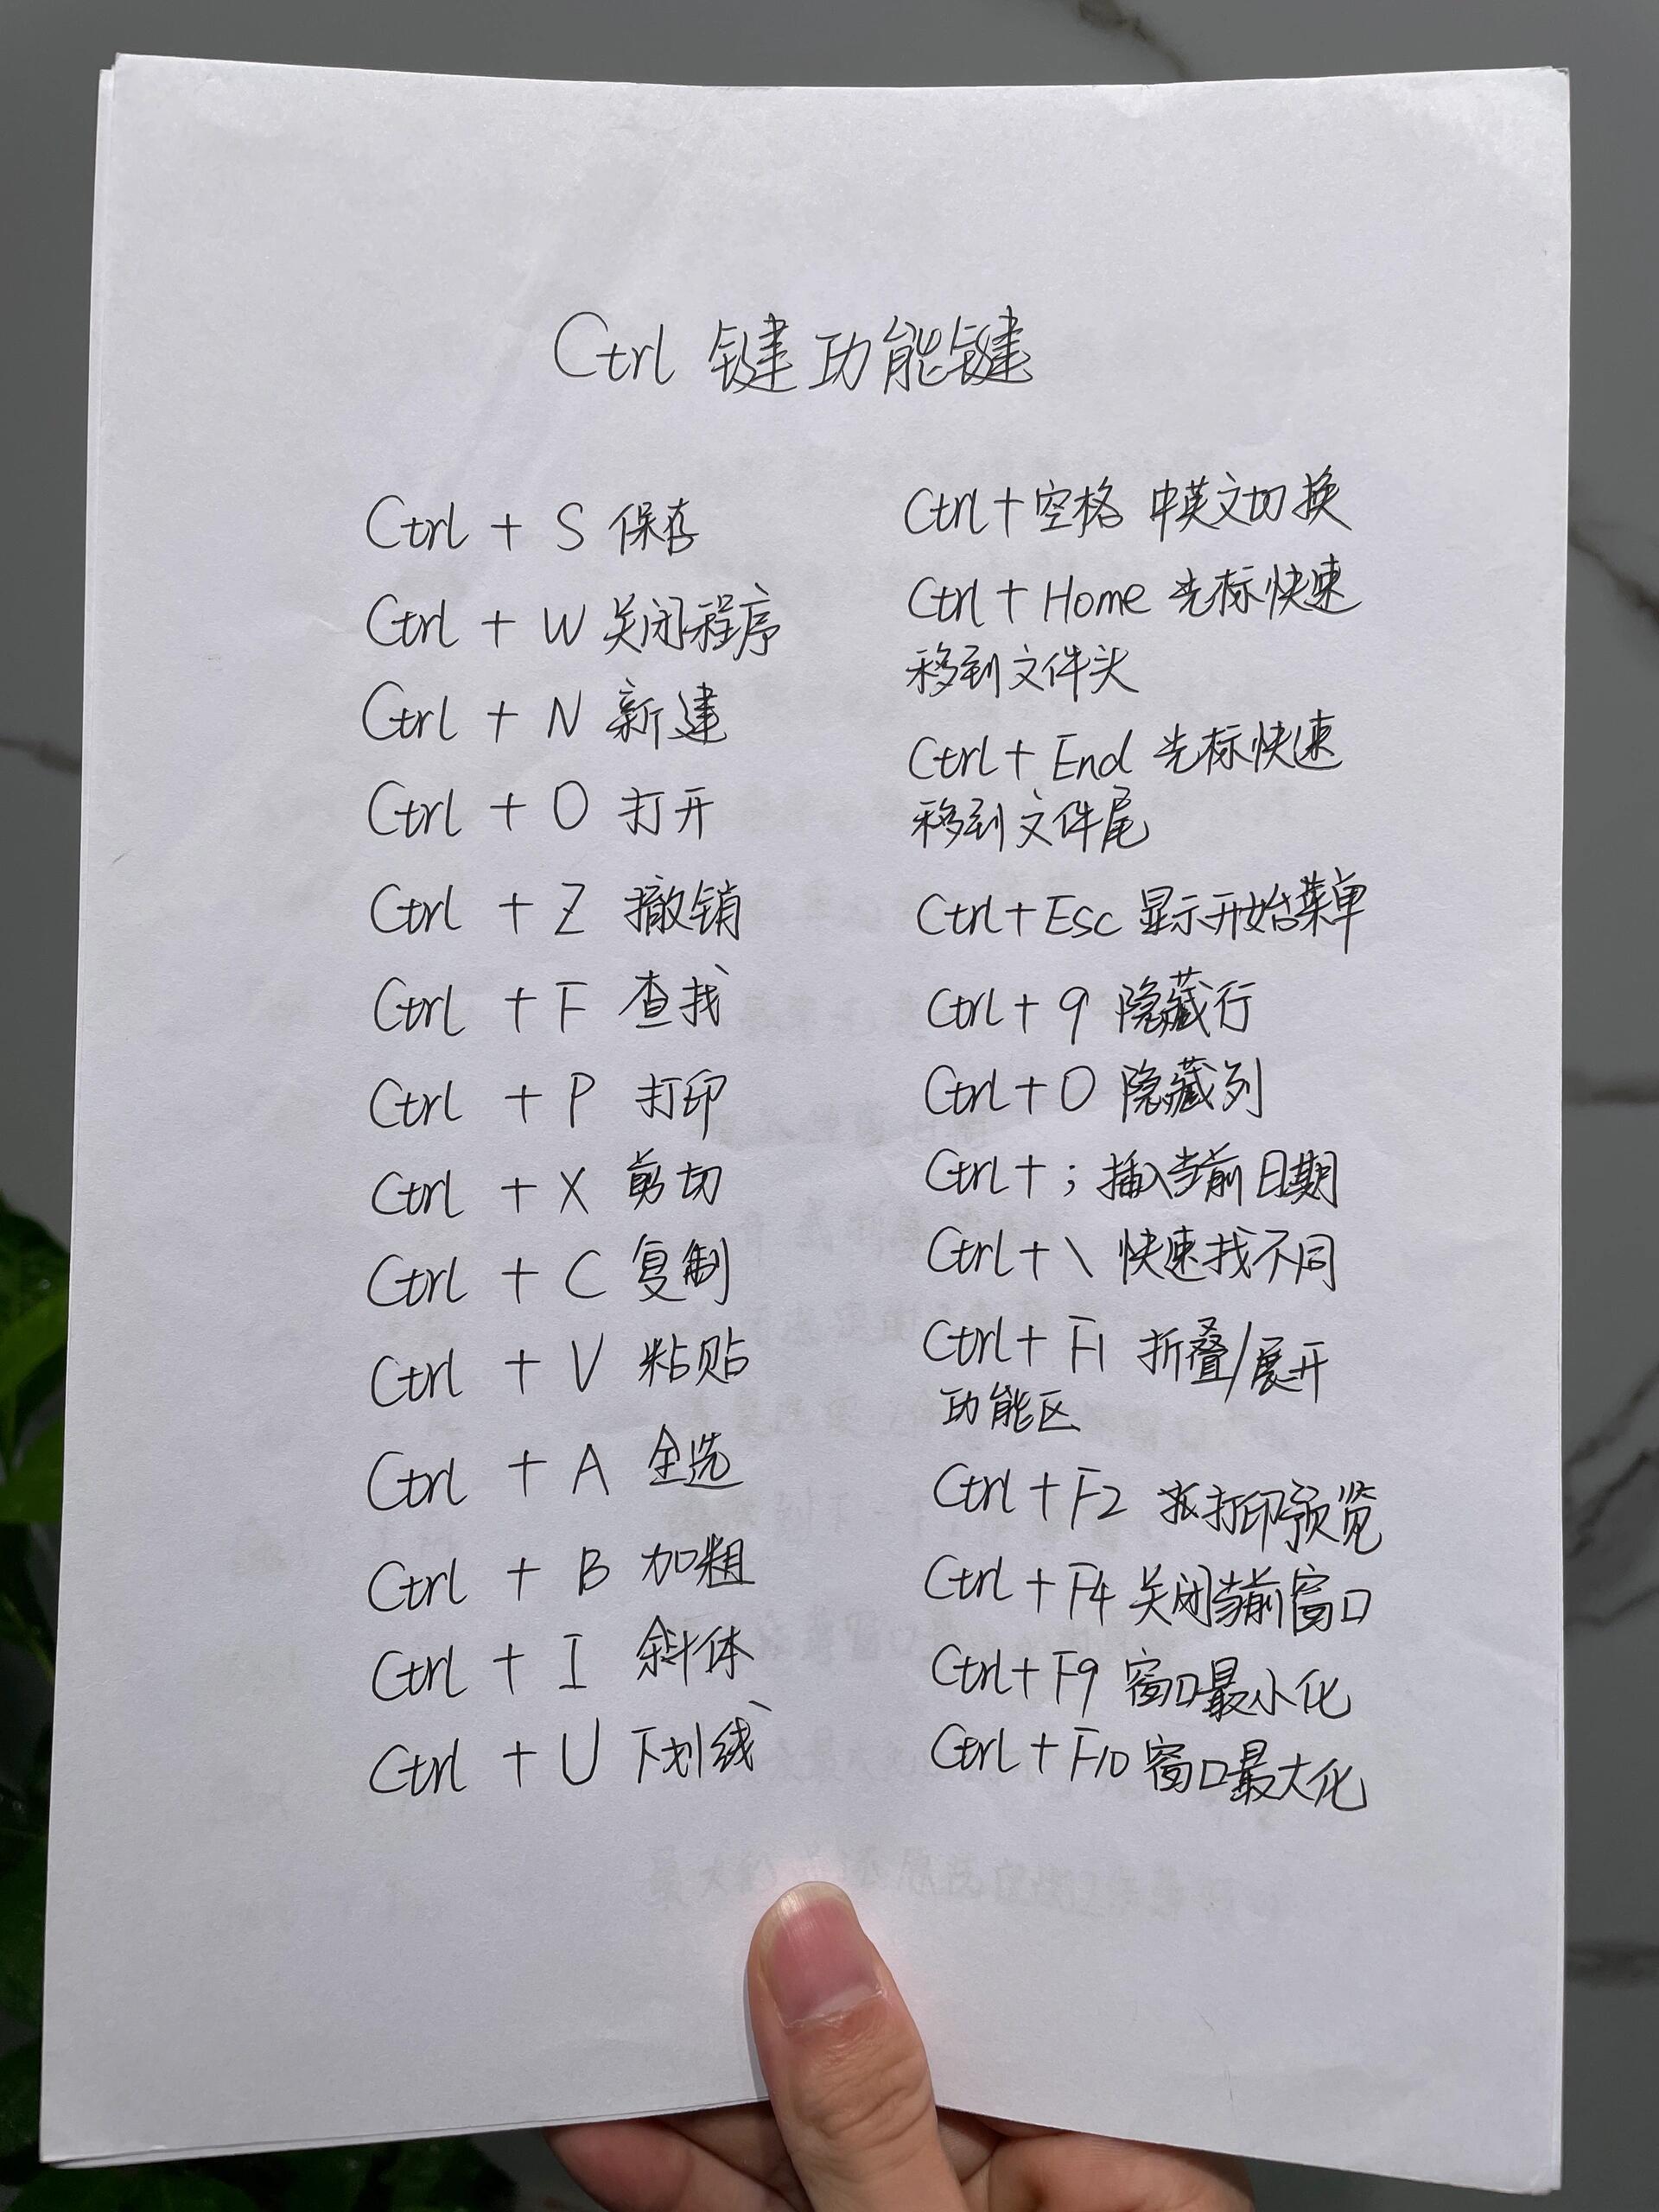 Ctrl 键功能键
Ctrl + S 保存
Ctrl + W 关闭程序
Ctrl + N 新建
Ctrl + O 打开
Ctrl + Z 撤销
Ctrl + F 查找
Ctrl + P 打印
Ctrl + X 剪切
Ctrl + C 复制
Ctrl + V 粘贴
Ctrl + A 全选
Ctrl + B 加粗
Ctrl + I 斜体
Ctrl + U 下划线
Ctrl+空格 中英文切换
Ctrl+Home 光标快速
移到文件头
Ctrl+End 光标快速
移到文件尾
Ctrl+Esc 显示开始菜单
Ctrl+9 隐藏行
Ctrl+0 隐藏列
Ctrl+; 插入当前日期
Ctrl+\ 快速找不同
Ctrl+F1 折叠/展开
功能区
Ctrl+F2 打印预览
Ctrl+F4 关闭当前窗口
Ctrl+F9 窗口最小化
Ctrl+F10 窗口最大化